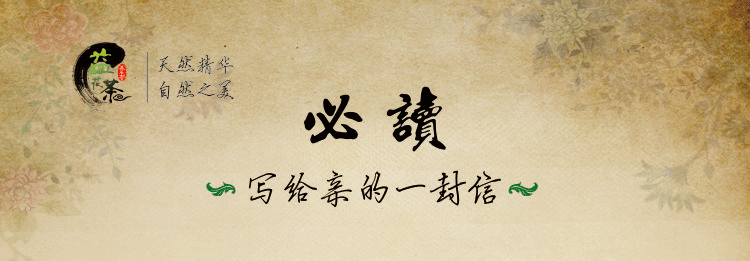 益
茶
天然精华
自然之美
必讀
写给亲的一封信